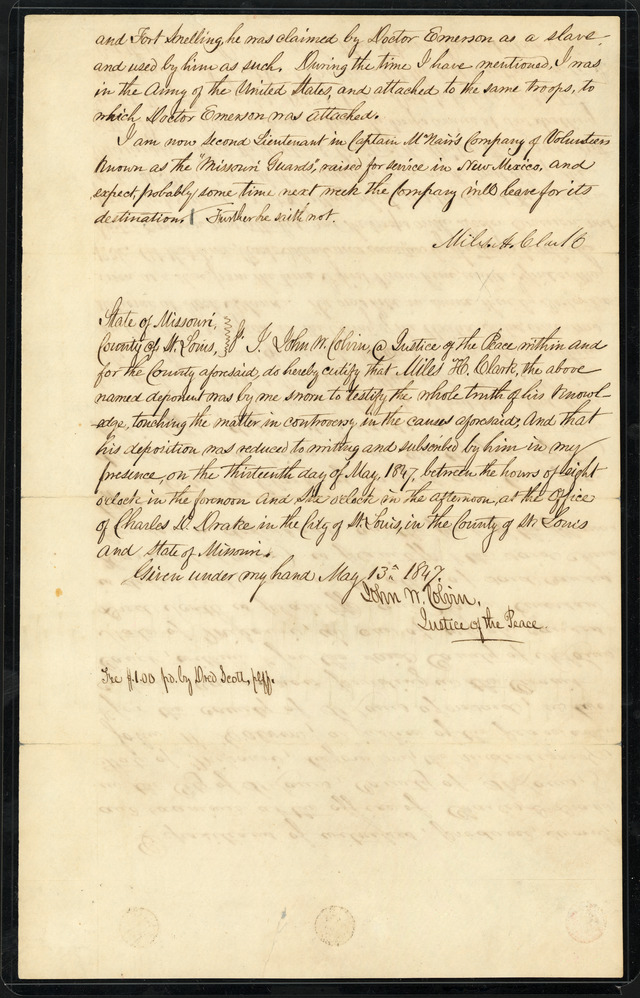 and Fort Snelling, he was claimed by Doctor Emerson as a slave,
and used by him as such. During the time I have mentioned, I was
in the Army of the United States, and attached to the same troops, to
which Doctor Emerson was attached.
I am now second Lieutenant in Captain McNair's Company of Volunteers
known as the "Missouri Guards", raised for service in New Mexico, and
expect, probably some time next week the Company will leave for its
destination. Further he saith not.
Miles H. Clark
State of Missouri,
County of St. Louis, I, John W. Colvin, a Justice of the Peace within and
for the County aforesaid, do hereby certify that Miles H. Clark, the above
named deponent was by me sworn to testify the whole truth of his knowl-
edge, touching the matter in controversy in the cause aforesaid; And that
his deposition was reduced to writing and subscribed by him in my
presence, on the thirteenth day of May, 1847, between the hours of eight
o'clock in the forenoon and six o'clock in the afternoon, at the Office
of Charles D. Drake in the City of St. Louis, in the County of St. Louis
and State of Missouri.
Given under my hand May 13th 1847.
John W. Colvin,
Justice of the Peace.
Fee $1.00 pd. by Dred Scott, plff.